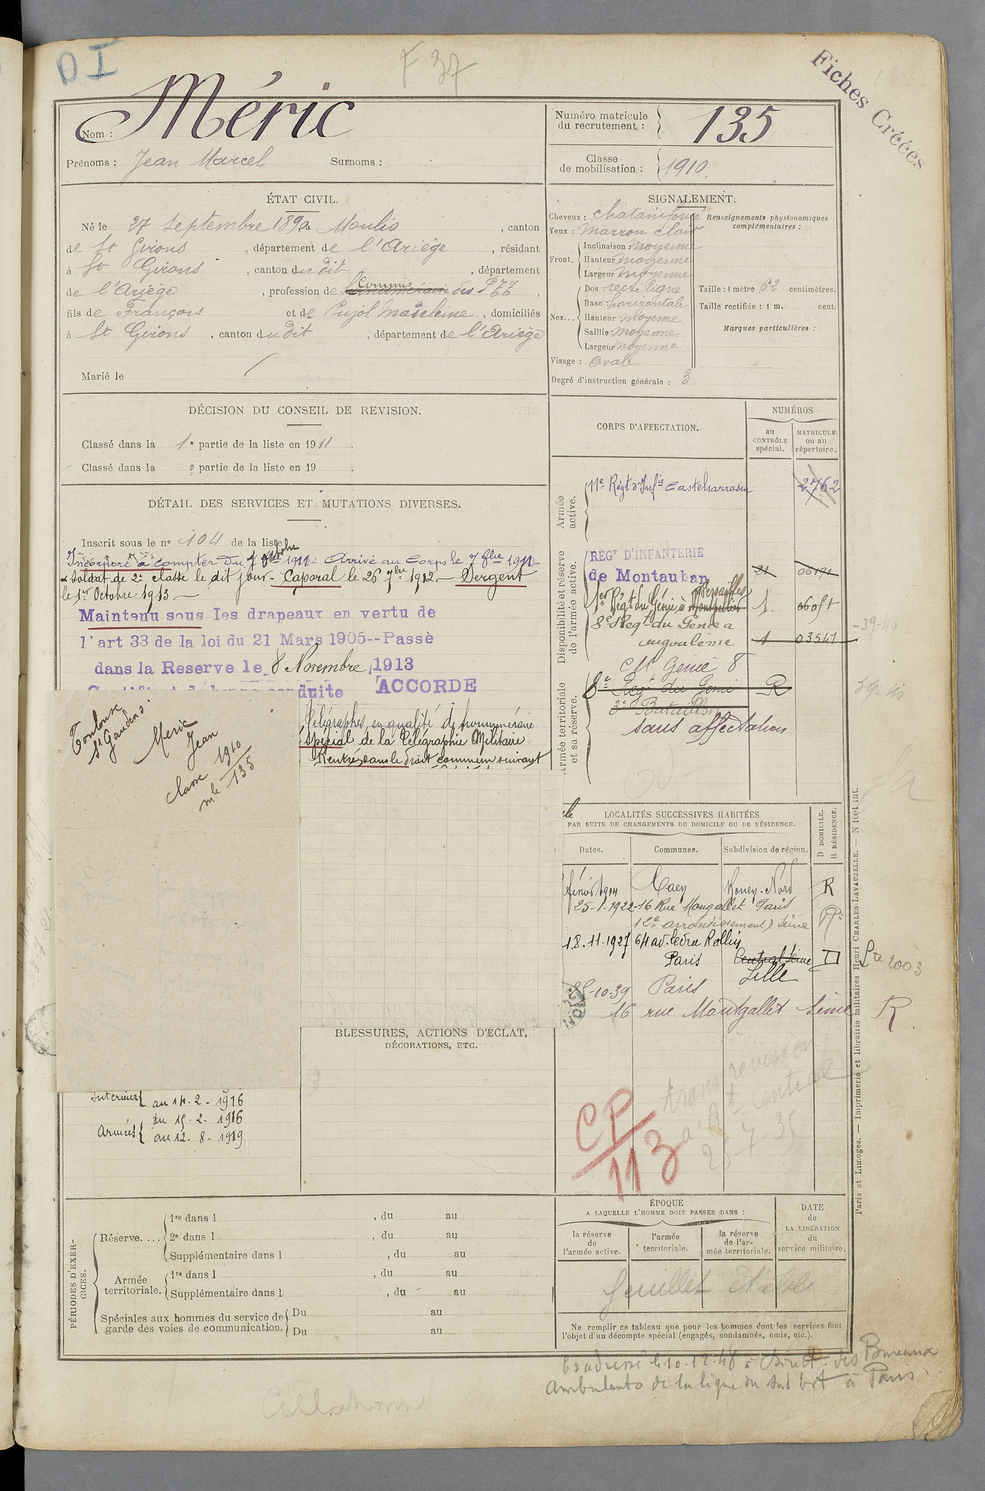 DI
F 37
Fiches Créées
Nom : Méric
Prénoms : Jean Marcel Surnoms :
Numéro matricule du recrutement : 135
Classe de mobilisation : 1910.
ÉTAT CIVIL.
Né le 27 septembre 1890 à Moulis, canton
de St Girons, département de l'Ariège, résidant
à St Girons, canton du dit, département
de l'Ariège, profession de Commis des PTT,
fils de François et de Pujol Madeleine, domiciliés
à St Girons, canton du dit, département de l'Ariège
Marié le
SIGNALEMENT.
Cheveux : chatain foncé
Yeux : marron clair
Front. Inclinaison moyenne
Hauteur moyenne
Largeur moyenne
Nez... Dos rectiligne
Base : horizontale
Hauteur moyenne
Saillie moyenne
Largeur moyenne
Visage : ovale
Degré d'instruction générale : 3
Renseignements physionomiques complémentaires :
Taille : 1 mètre 62 centimètres.
Taille rectifiée : 1 m. cent.
Marques particulières :
DÉCISION DU CONSEIL DE REVISION.
Classé dans la 1e partie de la liste en 1911.
Classé dans la e partie de la liste en 19 .
DÉTAIL DES SERVICES ET MUTATIONS DIVERSES.
Inscrit sous le n° 104 de la liste
Incorporé à compter du 7 Octobre 1911. Arrivé au Corps le 7 8bre 1911
& Soldat de 2e classe le dit jour. Caporal le 26 7bre 1912. Sergent
le 1er Octobre 1913
Maintenu sous les drapeaux en vertu de
l'art 33 de la loi du 21 Mars 1905--Passé
dans la Reserve le 8 Novembre 1913
conduite ACCORDE
Toulouse
St Gaudens.
Meric
Jean
classe 1910
mle 135
Télégraphes, en qualité de surnuméraire
spécial de la Télégraphie Militaire
Rentre dans le droit commun suivant
CORPS D'AFFECTATION.
NUMÉROS
au CONTRÔLE spécial.
MATRICULE ou au répertoire.
Armée active.
11e Régt d'Infie Castelsarrasin 2762
Disponibilité et réserve de l'armée active.
RÉGt D'INFANTERIE
de Montauban 21
1er Régt du Génie à Versailles Montpellier 1.
8e Reg. du Genie à
angoulême 1 03541
Armée territoriale et sa réserve.
Ct Genie 8
8e Regt du Genie R
3e Bataillon
sans affectation
LOCALITÉS SUCCESSIVES HABITÉES
PAR SUITE DE CHANGEMENTS DE DOMICILE OU DE RÉSIDENCE.
Dates. Communes. Subdivision de région. D DOMICILE. R RÉSIDENCE.
Rouen-Nord R
25-1-1922 16 Rue Mongallet Paris
(12e arrondissement) Seine R
18.11.1927 64 av. Ledru Rollin
Paris Central Seine D
Lille
25-10-39 Paris
16 rue Montgallet Seine R
BLESSURES, ACTIONS D'ÉCLAT,
DÉCORATIONS, ETC.
Intérieur au 14. 2. - 1916
Armées du 15. 2. 1916
au 12. 8. 1919
CP
113
25-7-35
PÉRIODES D'EXERCICES.
Réserve.... 1re dans l , du au
2e dans l , du au
Supplémentaire dans l , du au
Armée territoriale. 1re dans l , du au
Supplémentaire dans l , du au
Spéciales aux hommes du service de garde des voies de communication. Du au
Du au
ÉPOQUE
A LAQUELLE L'HOMME DOIT PASSER DANS :
la réserve de l'armée active.
l'armée territoriale.
la réserve de l'armée territoriale.
DATE de LA LIBÉRATION du service militaire.
feuillet établi
Ne remplir ce tableau que pour les hommes dont les services font
l'objet d'un décompte spécial (engagés, condamnés, omis, etc.).
Paris et Limoges. — Imprimerie et librairie militaires Henri CHARLES-LAVAUZELLE. — N 1001 int.
Ex adressé le 10-12-48 à Direct. des Bureaux
ambulants de la ligne du Sud Est à Paris.